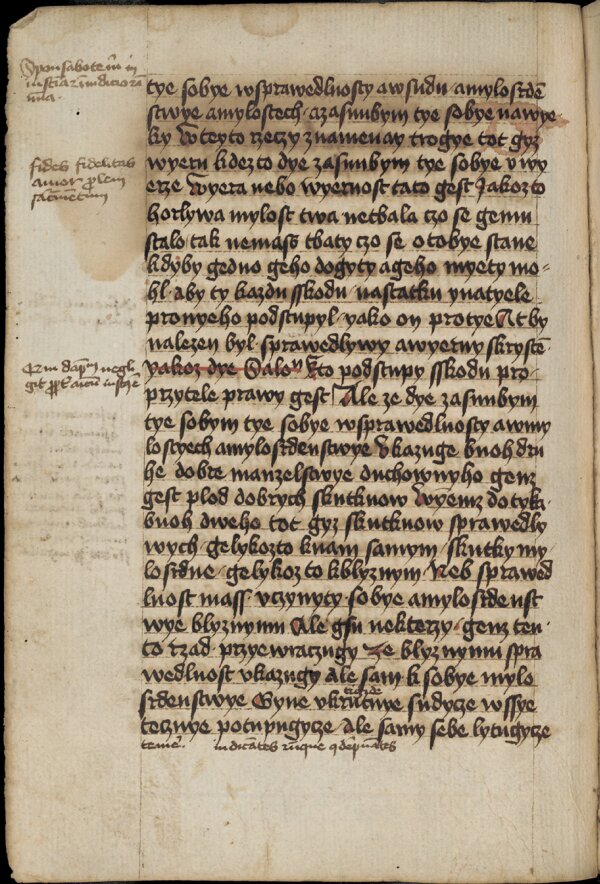 Sponsabo te m in
iusticia et in iudicio et in
mia.
tye sobye wsprawedlnosty awsudu amylosrde
stwye amylostech azasnubym tye sobye nawye
ky Wteyto rzeczy znamenay trogye tot gyz
wyeru kdezto dye zasnubym tye sobye u wy
fides fidelitas
amor prolem
sacmetum
erze Wyera nebo wyernost tato gest Jakozto
horlywa mylost twa netbala czo se gemu
stalo tak nemass tbaty czo se otobye stane
kdyby gedno geho dogyty ageho myety mo-
hl aby ty kazdu sskodu nastatku ynatyele
pronyeho podstupyl yako on protye At by
nalezen byl sprawedlywy awyerny skryste
Qui dapm negl
git
yakoz dye Salon Kto podstupy sskodu pro
przytele prawy gest Ale ze dye zasnubym
tye sobym tye sobye wsprawedlnosty awmy
lostyech amylosrdenstwye Ukazuge buoh dru
he dobre manzelstwye duchownyho genz
gest plod dobrych skutkuow Wyemz dotyka
buoh dweho tot gyz skutkuow sprawedly
wych gelykozto knam samym skutky my
losrdne gelykoz to kblyznym Neb sprawed
lnost mass vczynyty sobye amylosrdenst
wye blyznymu Ale gsu nekterzy genz ten
to rzad przyewraczugy Ze blyznymu spra
wedlnost vkazugy Ale sam k sobye mylo
srdenstwye Gyne vkrutnye sudycze wssye
tecznye potupugycze Ale samy sebe lytugycze
teme. iudicates